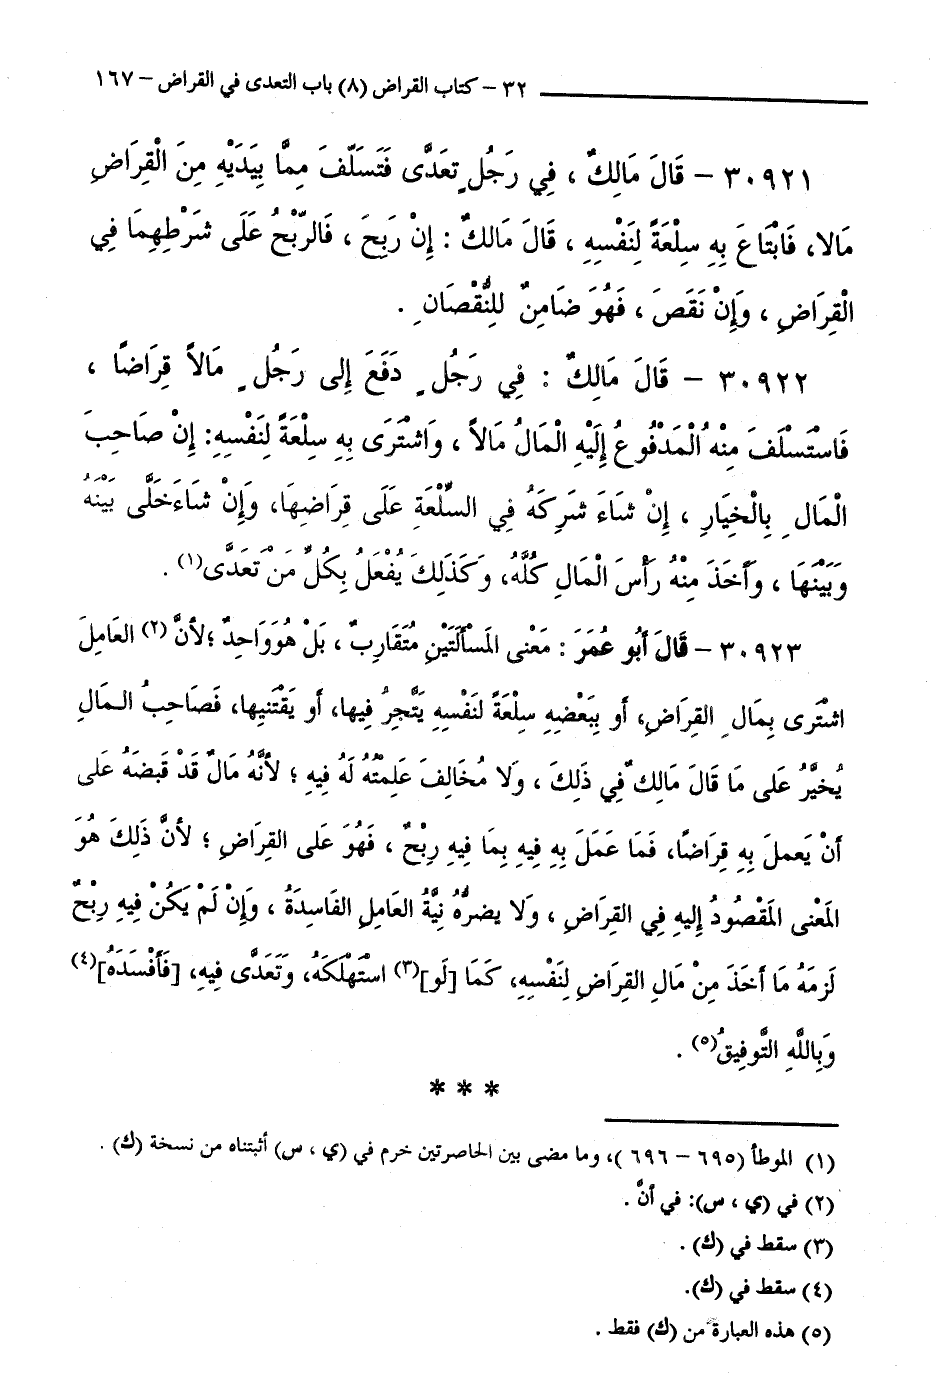 ٣٢ – كتاب القراض (٨) باب التعدى في القراض – ١٦٧
٣٠٩٢١ – قَالَ مَالِكٌ ، فِي رَجُلٍ تَعَدَّى فَتَسَلَّفَ مِمَّا بِيَدَيْهِ مِنَ الْقِرَاضِ
مَالا، فَابْتَاعَ بِهِ سِلْعَةً لِنَفْسِهِ ، قَالَ مَالكٌ : إِنْ رَبِحَ ، فَالرِّبْحُ عَلَى شَرْطِهِمَا فِي
الْقِرَاضِ ، وَإِنْ نَقَصَ ، فَهُوَ ضَامِنٌ لِلنُّقْصَانِ .
٣٠٩٢٢ – قَالَ مَالِكٌ : فِي رَجُلٍ دَفَعَ إِلى رَجُلٍ مَالاً قِرَاضًا ،
فَاسْتَسْلَفَ مِنْهُ الْمَدْفُوعُ إِلَيْهِ الْمَالُ مَالاً ، وَاشْتَرَى بِهِ سِلْعَةً لِنَفْسِهِ: إِنْ صَاحِبَ
الْمَالِ بِالْخِيَارِ ، إِنْ شَاءَ شَرِكَهُ فِي السِّلْعَةِ عَلَى قِرَاضِهَا، وَإِنْ شَاءَ خَلَّى بَيْنَهُ
وَبَيْنَهَا ، وَأَخَذَ مِنْهُ رَأْسَ الْمَالِ كُلَّهُ، وَكَذَلِكَ يُفْعَلُ بِكُلِّ مَنْ تَعَدَّى(١) .
٣٠٩٢٣ – قَالَ أَبُو عُمَرَ : مَعْنى المَسْأَلَتَيْنِ مُتَقَارِبٌ ، بَلْ هُوَ وَاحِدٌ ؛ لأَنَّ (٢) العَامِلَ
اشْتَرى بِمَالِ القِرَاضِ، أو بِبَعْضِهِ سِلْعَةً لنَفْسِهِ يَتَّجِرُ فِيها، أو يَقْتَنِيها، فَصَاحِبُ الـمَالِ
يُخيَّرُ عَلى مَا قَالَ مَالِكٌ فِي ذَلِكَ ، وَلا مُخَالِفَ عَلِمْتُهُ لَهُ فِيهِ ؛ لأنَّهُ مَالٌ قَدْ قَبضَهُ عَلى
أَنْ يَعملَ بِهِ قِرَاضًا، فَمَا عَمَلَ بِهِ فِيهِ بِمَا فِيهِ رِبْحٌ ، فَهُوَ عَلى القِرَاضِ ؛ لأنَّ ذَلِكَ هُوَ
المَعْنى المَقْصُودُ إِليهِ فِي القِرَاضِ ، وَلا يضرُّهُ نِيَّةُ العَامِلِ الفَاسِدَةُ ، وَإِنْ لَمْ يَكُنْ فِيهِ رِبْحٌ
لَزمَهُ مَا أَخَذَ مِنْ مَالِ القِرَاضِ لِنَفْسِهِ، كَمَا [لَو](٣) اسْتَهْلَكَهُ، وَتَعَدَّى فِيهِ، [فَأَفْسَدَهُ](٤)
وَبِاللَّهِ التَّوفِيقُ(٥) .
* * *
(١) الموطأ (٦٩٥ – ٦٩٦ )، وما مضى بين الحاصرتين خرم في (ي ، س) أثبتناه من نسخة (ك) .
(٢) في (ي ، س): في أنَّ .
(٣) سقط في (ك) .
(٤) سقط في (ك).
(٥) هذه العبارة من (ك) فقط .